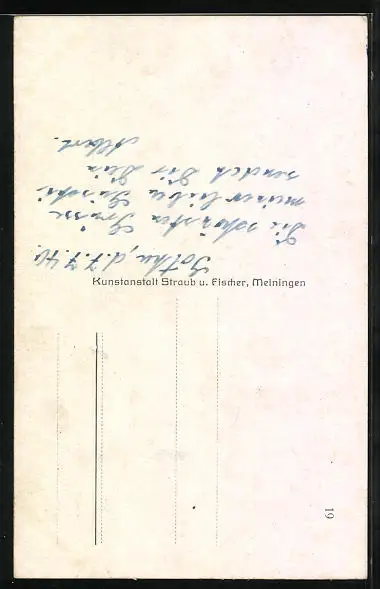 Gotha, d. 7.7.40.
Die schönsten Grüsse
meiner lieben
sendet Dir Dein
Albert.
Kunstanstalt Straub u. Fischer, Meiningen
19